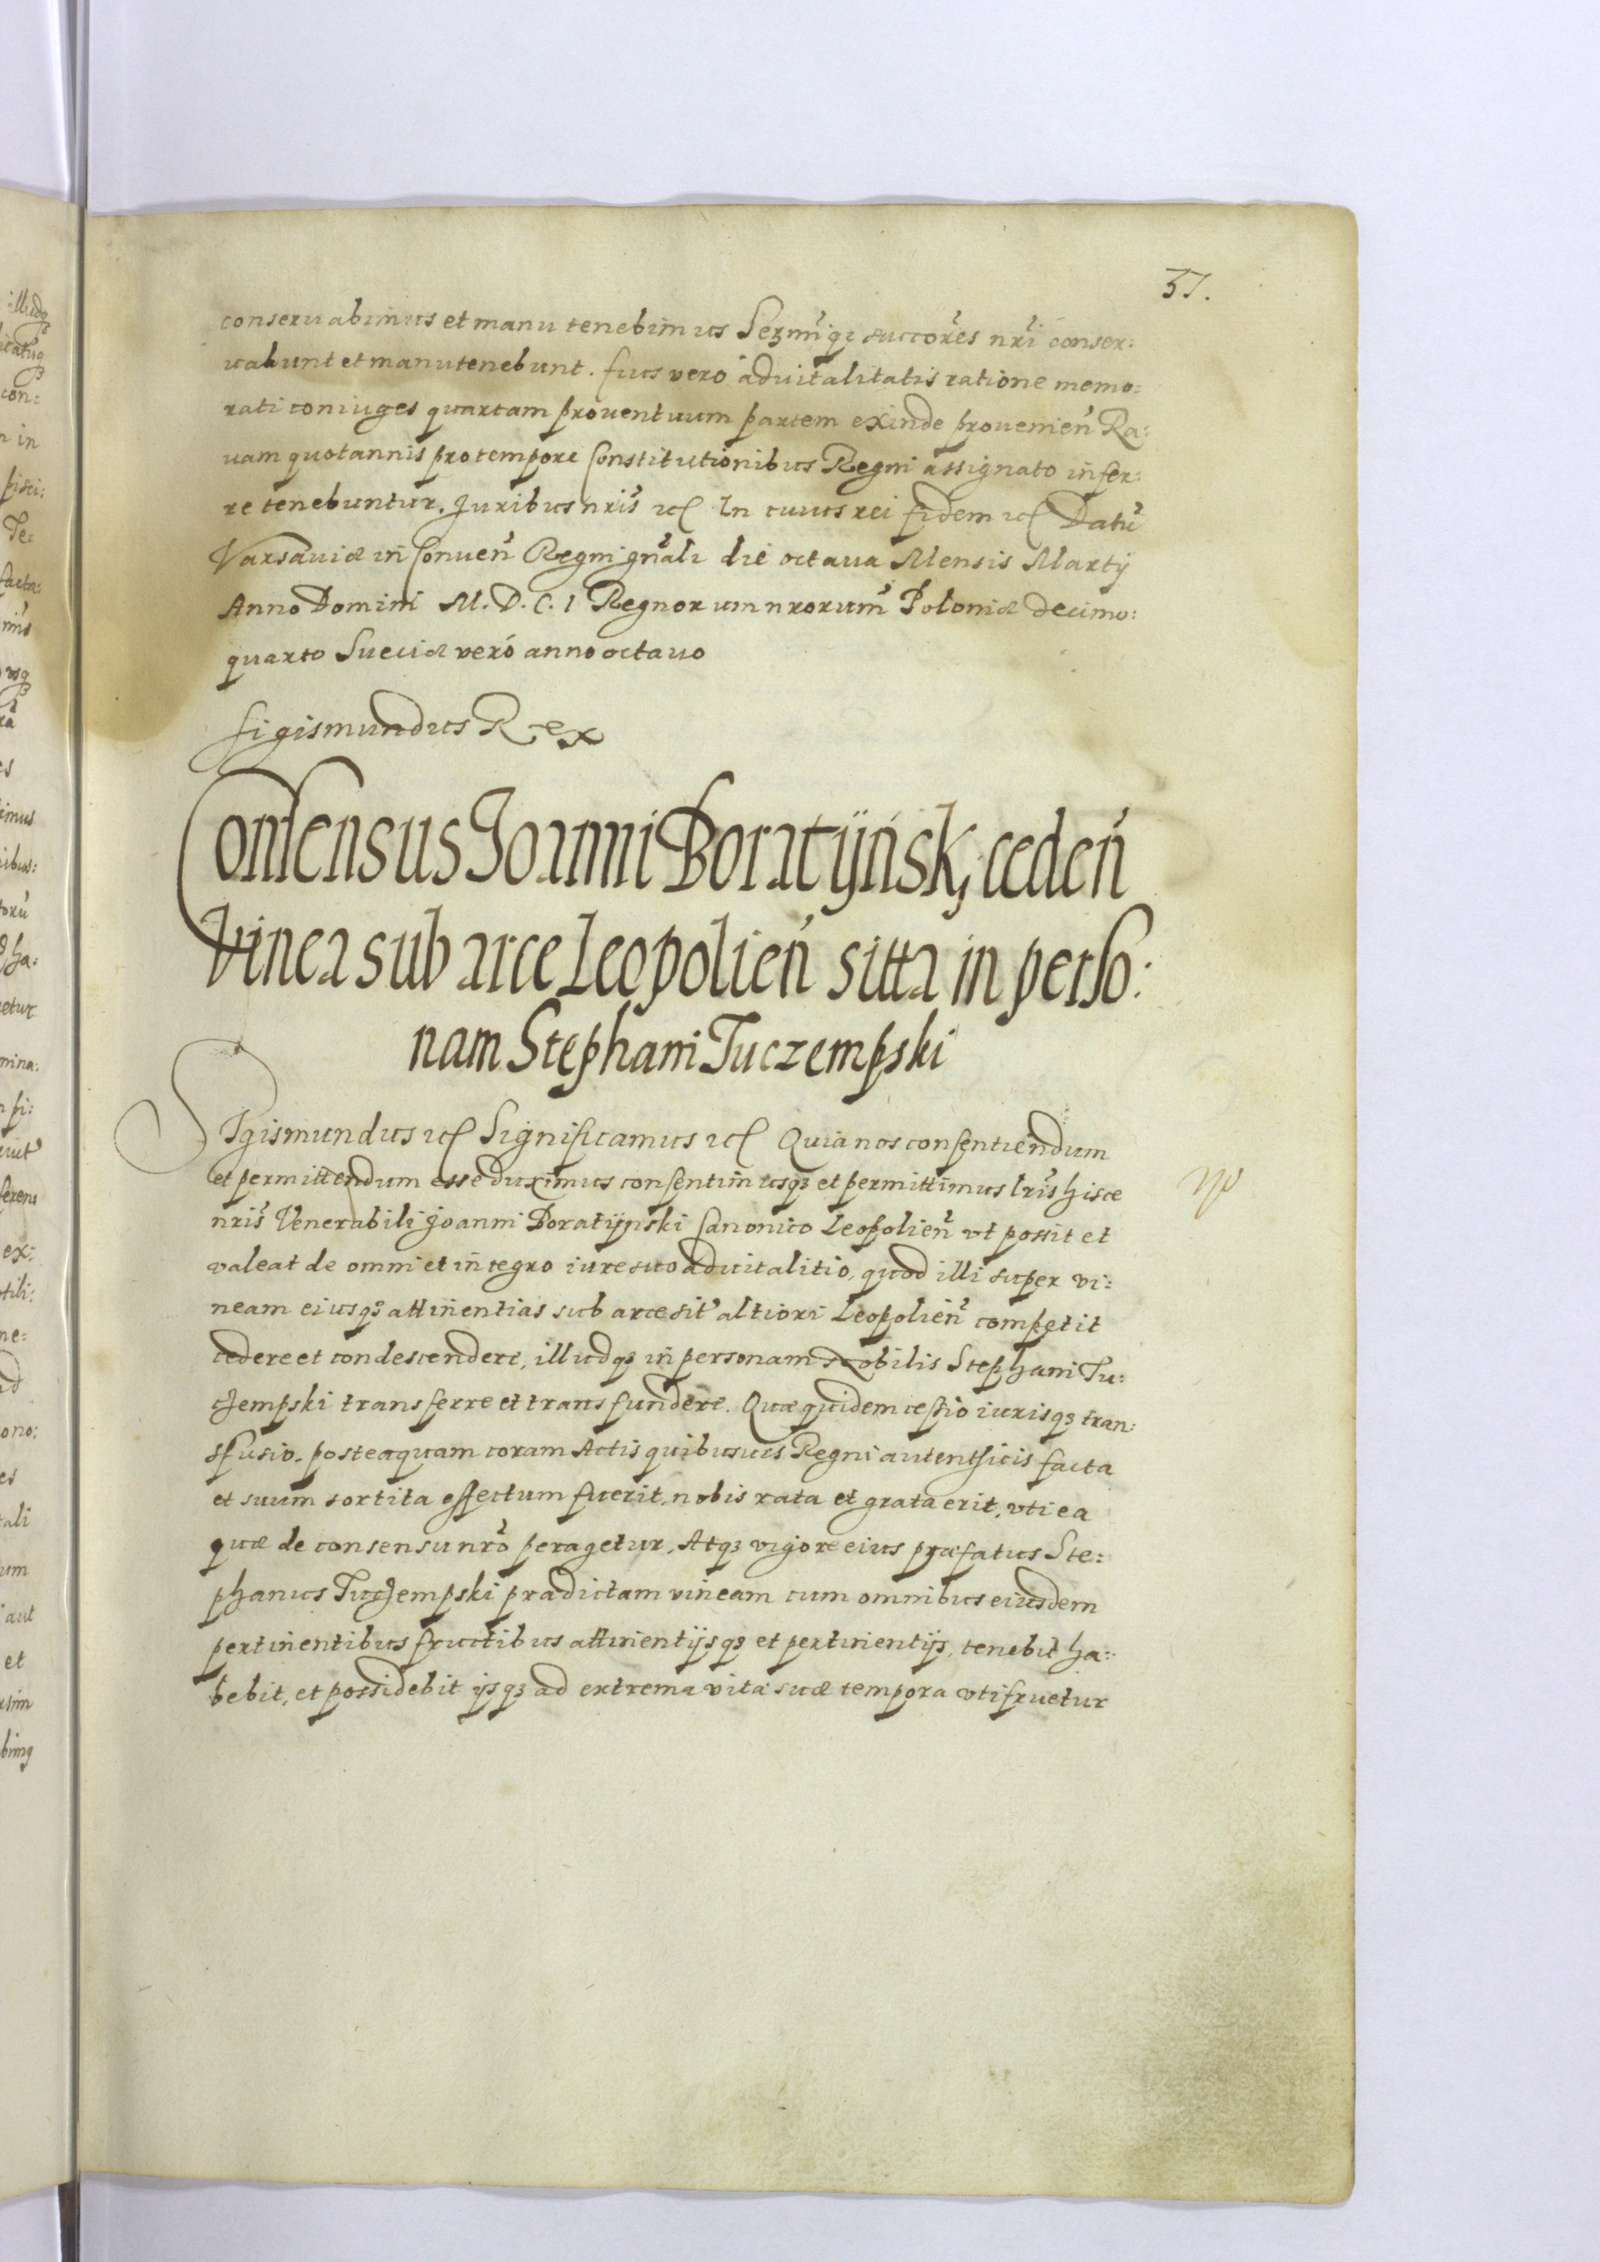 37.
conseruabimus et manu tenebimus Sermiq; succores nri conser:
uabunt et manutenebunt. fucs vero aduitalitatis ratione memo:
rati coniuges quartam prouentuum partem exinde prouenien Ra:
uam quotannis pro tempore Constitutionibus Regni assignato infer:
re tenebuntur. Juribus nris etc In cuius rei fidem etc Datu
Varsauiæ in Conuen Regni gnali die octaua Mensis Martij
Anno Domini M.D.C.I Regnorum nrorum Poloniæ decimo:
quarto Sueciæ veró anno octauo
Sigismundus Rex
Consensus Joanni Boratÿński ceden
Vinea sub arce Leopolien sitta in perso:
nam Stephani Tuczempski
Sigismundus etc Significamus etc Quia nos consentiendum
et permittendum esse duximus consentimusq; et permittimus lris hisce
nris Venerabili Joanni Boratÿnski Canonico Leopolien vt possit et
valeat de omni et integro iure suo aduitalitio, quod illi super vi:
neam eiusq; attinentias sub arce sit altiori Leopolien competit
cedere et condescendere, illudq; in personam Nobilis Stephani Tu:
czempski transferre et transfundere. Quæ quidem cessio iurisq; tran:
sfusio, posteaquam coram Actis quibusuis Regni autenthicis facta
et suum sortita effectum fuerit, nobis rata et grata erit, vti ea
quæ de consensu nro peragetur, Atq; vigore eius præfatus Ste:
phanus Tuczempski prædictam vineam cum omnibus eiusdem
pertinentibus fructibus attinentijsq; et pertinentijs, tenebit ha:
bebit, et possidebit ijsq; ad extrema vitæ suæ tempora vtifruetur